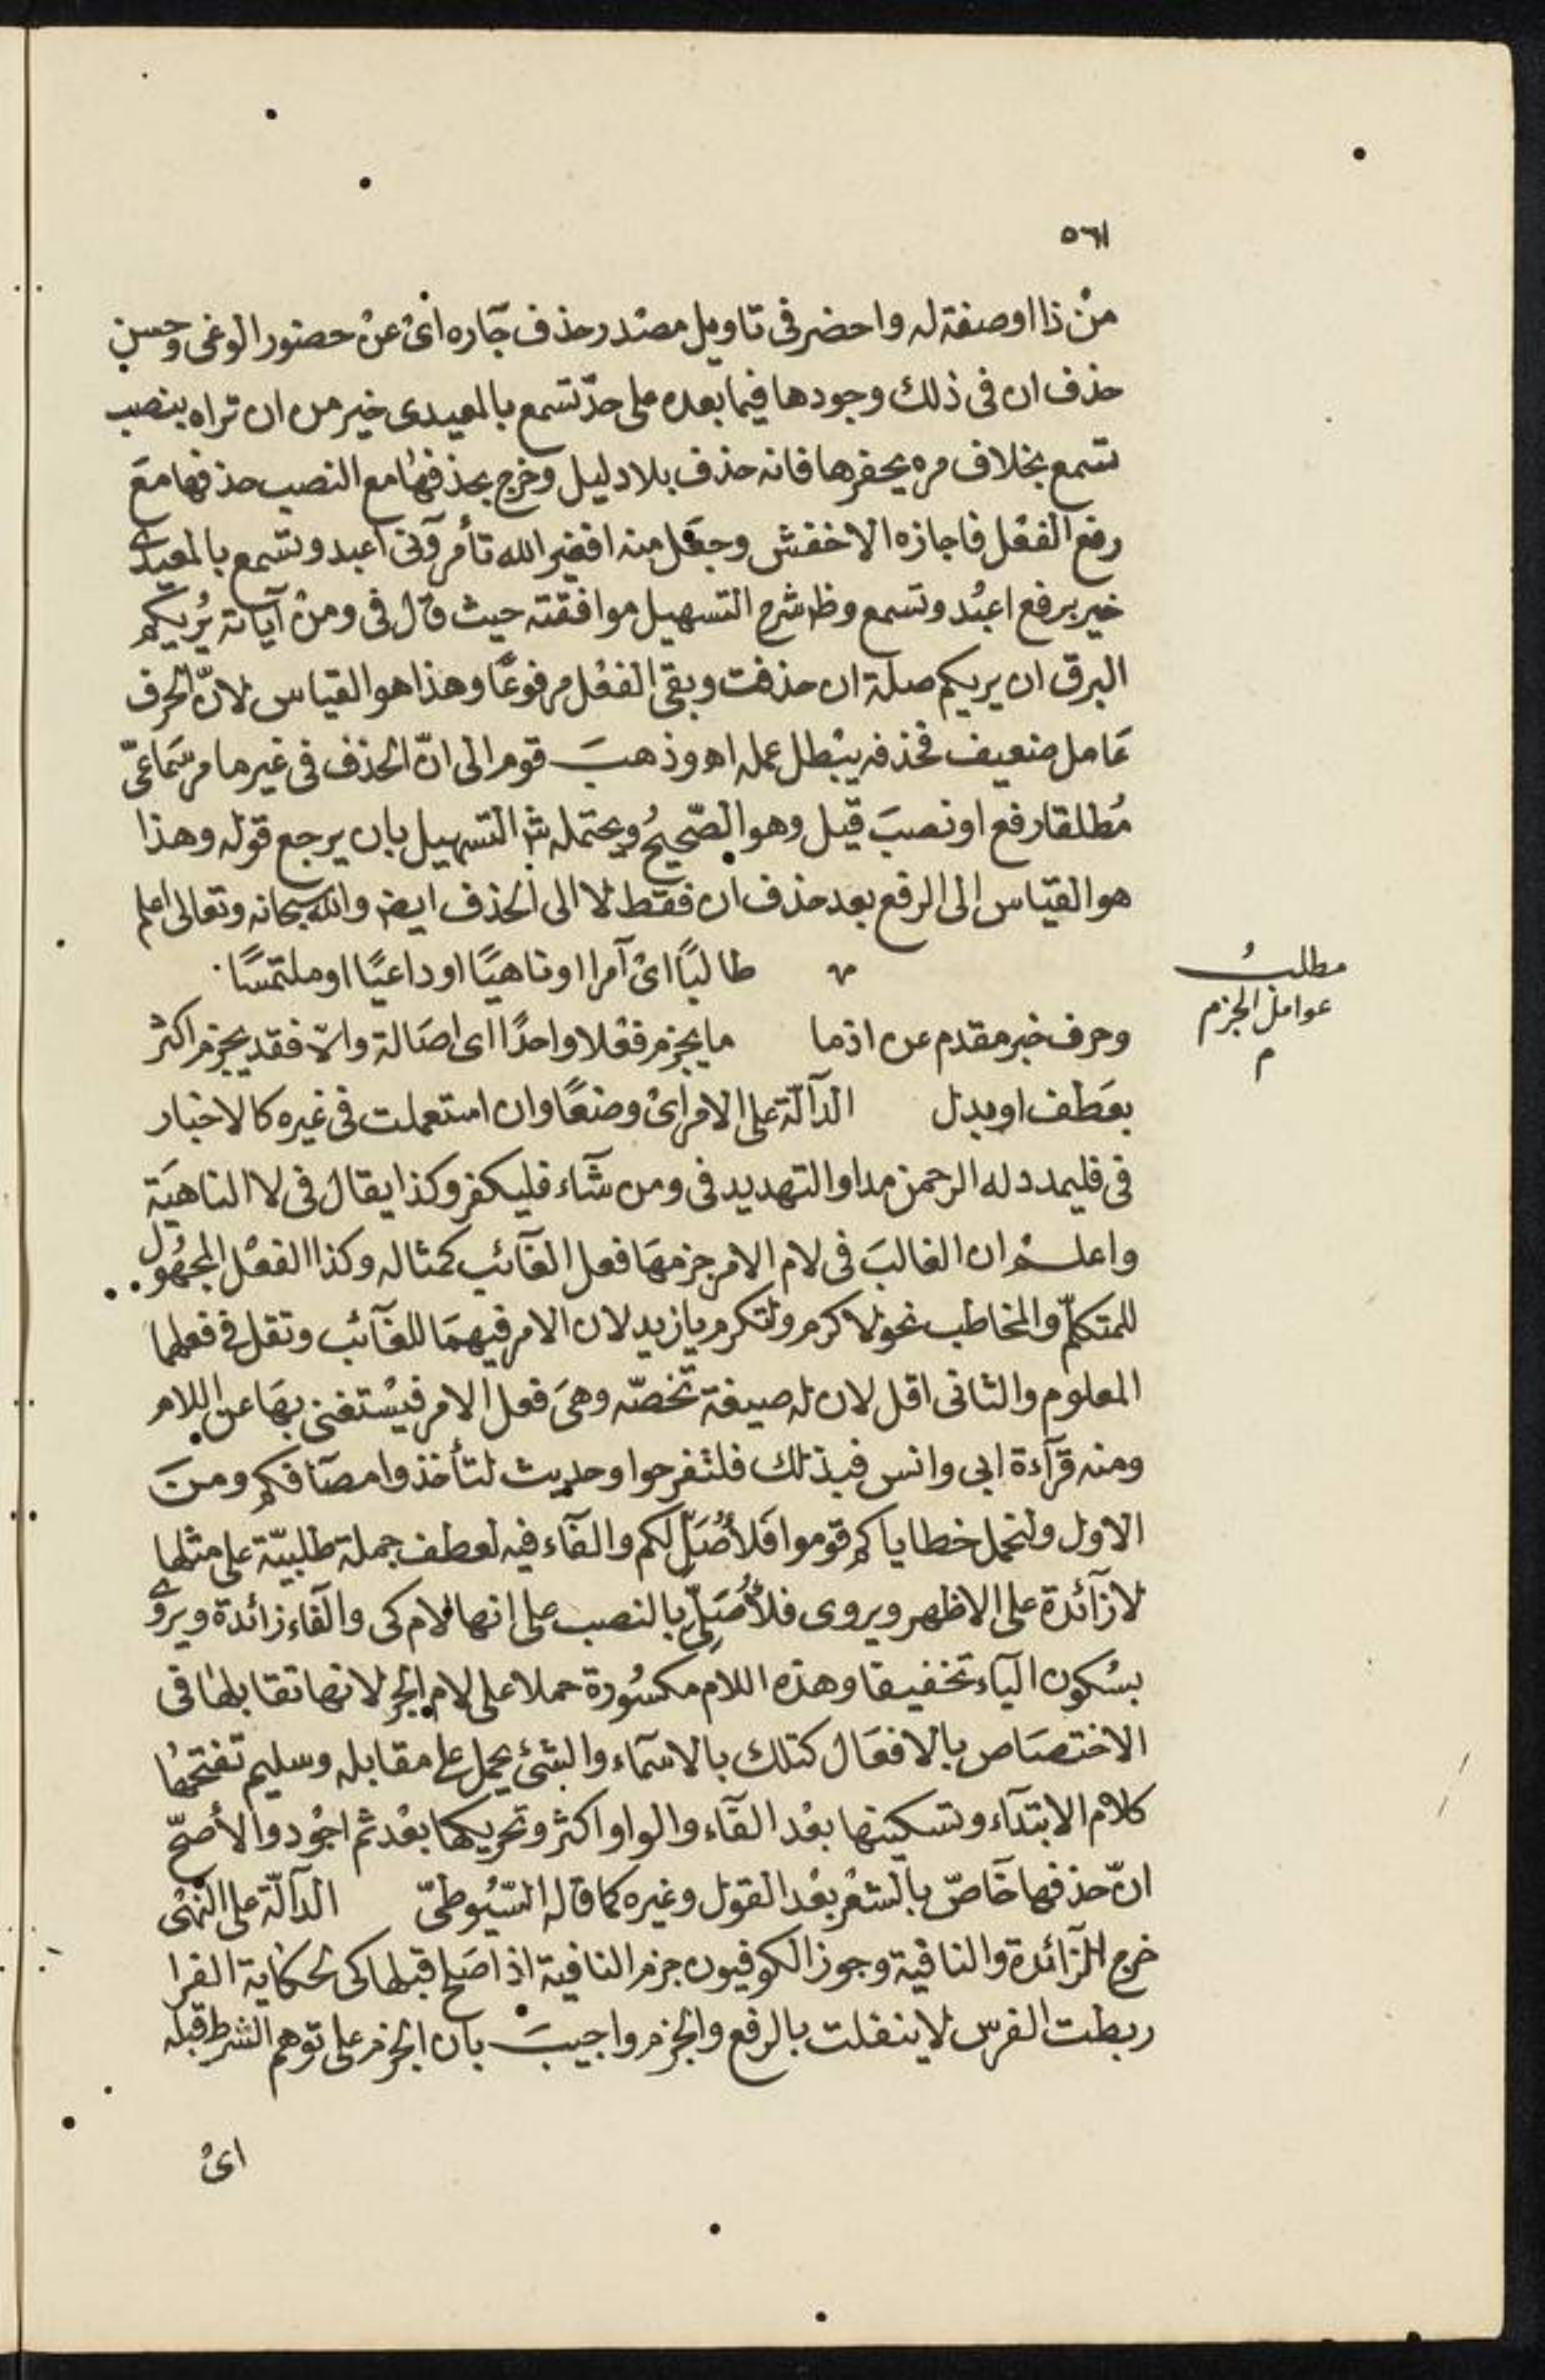 ٥٦١
من ذا اوصفة له واحضر فى تاويل مصدر حذف جاره اى عن حضور الوغى وحسن
حذف ان فى ذلك وجودها فيما بعده على حدّ تسمع بالمعيدى خير من ان تراه بنصب
تسمع بخلاف مره يحفرها فانه حذف بلا دليل وخرج بحذفها مع النصب حذفها مع
رفع الفعل فاجازه الاخفش وجعل منه افغير الله تأمرونى اعبد وتسمع بالمعيدى
خير برفع اعبُد وتسمع وظ شرح التسهيل موافقته حيث قال فى ومن آياته يُريكم
البرق ان يريكم صلة ان حذفت وبقى الفعل مرفوعًا وهذا هو القياس لانّ الحرف
عامل ضعيف فحذفه يبطل عمله اه وذهبَ قوم الى انّ الحذف فى غير ما مر سماعىّ
مُطلقا رفع او نصبَ قيل وهو الصّحيحُ ويحتمله شر التسهيل بان يرجع قوله وهذا
هو القياس الى الرفع بعد حذف ان فقط لا الى الحذف ايضا والله سبحانه وتعالى اعلم
طالبًا اى آمرا او ناهيًا او داعيًا او ملتمسًا
مطلبُ
عوامل الجزم
م
وحرف خبر مقدم عن اذما ما يجزم فعلا واحدًا اى اصالة والّا فقد يجزم اكثر
بعَطف او بدل الدآلّة على الامر اىْ وضعًا وان استعملت فى غيره كالاخبار
فى فليمدد له الرحمن مدا والتهديد فى ومن شآء فليكفر وكذا يقال فى لا الناهيَة
واعلمْ ان الغالبَ فى لام الامر جزمهَا فعل الغآئب كمثاله وكذا الفعْل المجهُول
للمتكلّم والمخاطب نحو لاكرم ولتكرم يا زيد لان الامر فيهمَا للغآئب وتقل فى فعلهما
المعلوم والثانى اقل لان له صيغة تخصّه وهىَ فعل الامر فيسْتغنى بهَا عن اللام
ومنه قرآءة ابى وانس فبذلك فلتفرحوا وحديث لتأخذوا مصآفكم ومنَ
الاول ولنحمل خطاياكم قوموا فَلأُصَلِّ لكم والفآء فيه لعطف جملة طلبيّة على مثلها
لا زآئدة على الاظهر ويروى فلأُصَلّىَ بالنصب على انها لام كى والفآء زائدة ويروى
بسُكون اليآء تخفيفا وهذه اللام مكسُورة حملا على لام الجر لانها تقابلها فى
الاختصَاص بالافعَال كتلك بالاسمآء والشئ يحمل على مقابله وسليم تفتحهُا
كلام الابتدآء وتسكينها بعْد الفآء والواو اكثر وتحريكها بعْد ثم اجْود والأصحّ
انّ حذفها خآصّ بالشعْر بعْد القول وغيره كما قاله السّيُوطىّ الدآلّة على النْهى
خرج الزآئدة والنافية وجوز الكوفيون جزم النافية اذا صَلح قبلها كى لحكاية الفرا
ربطت الفرس لا ينفلت بالرفع والجزم واجيبَ بان الجزم على توهم الشرط قبله
اىْ